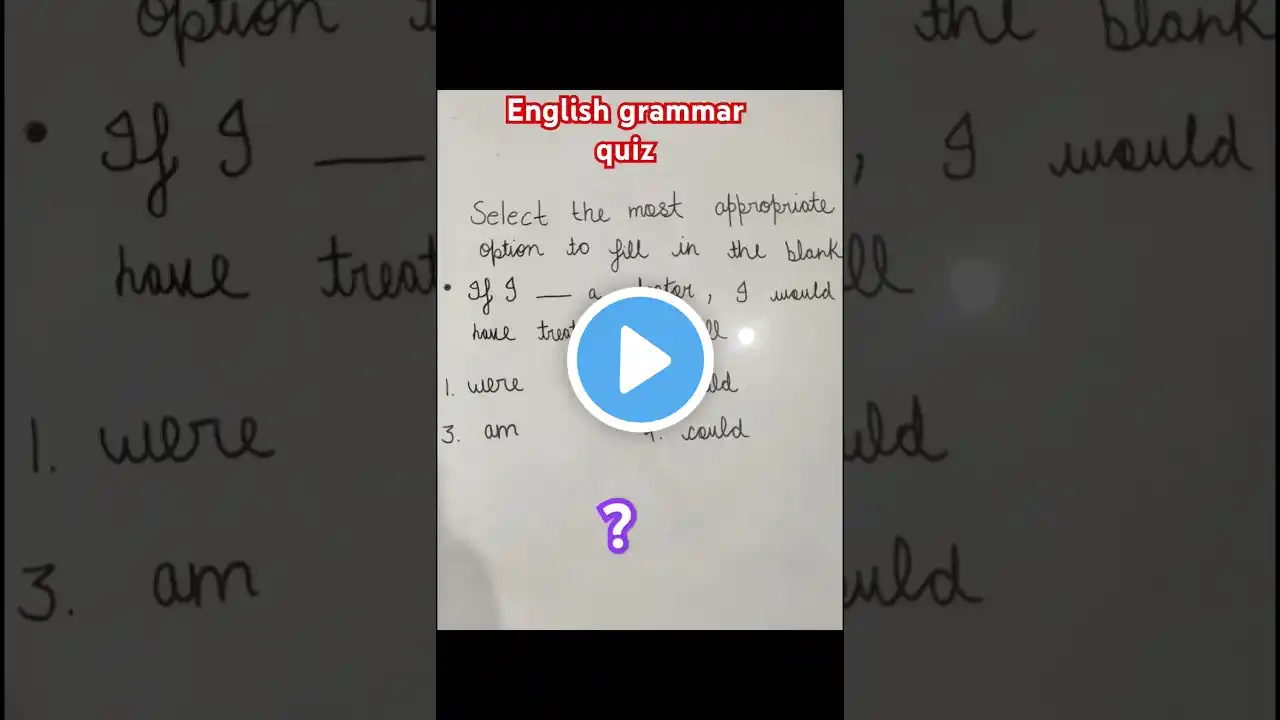 English grammar
quiz
Select the most appropriate
option to fill in the blank
• If I ___ a , I would
have
1. were
3. am 4. could
?